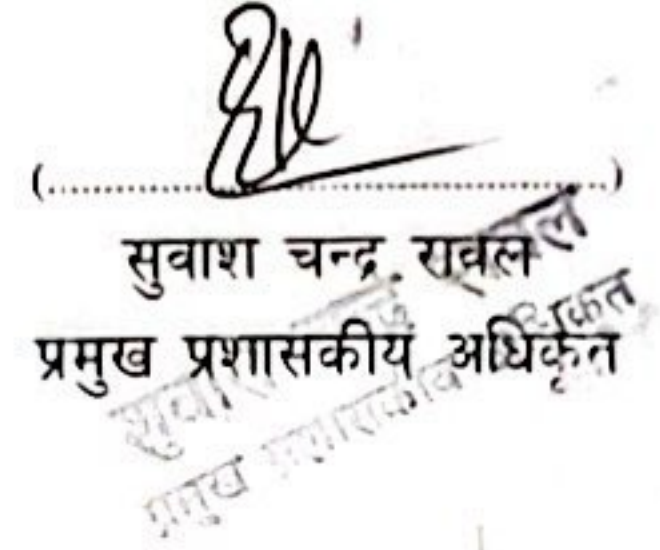 (........................................................)
सुवाश चन्द्र रावल
प्रमुख प्रशासकीय अधिकृत
सुवाश चन्द्र रावल
प्रमुख प्रशासकीय अधिकृत